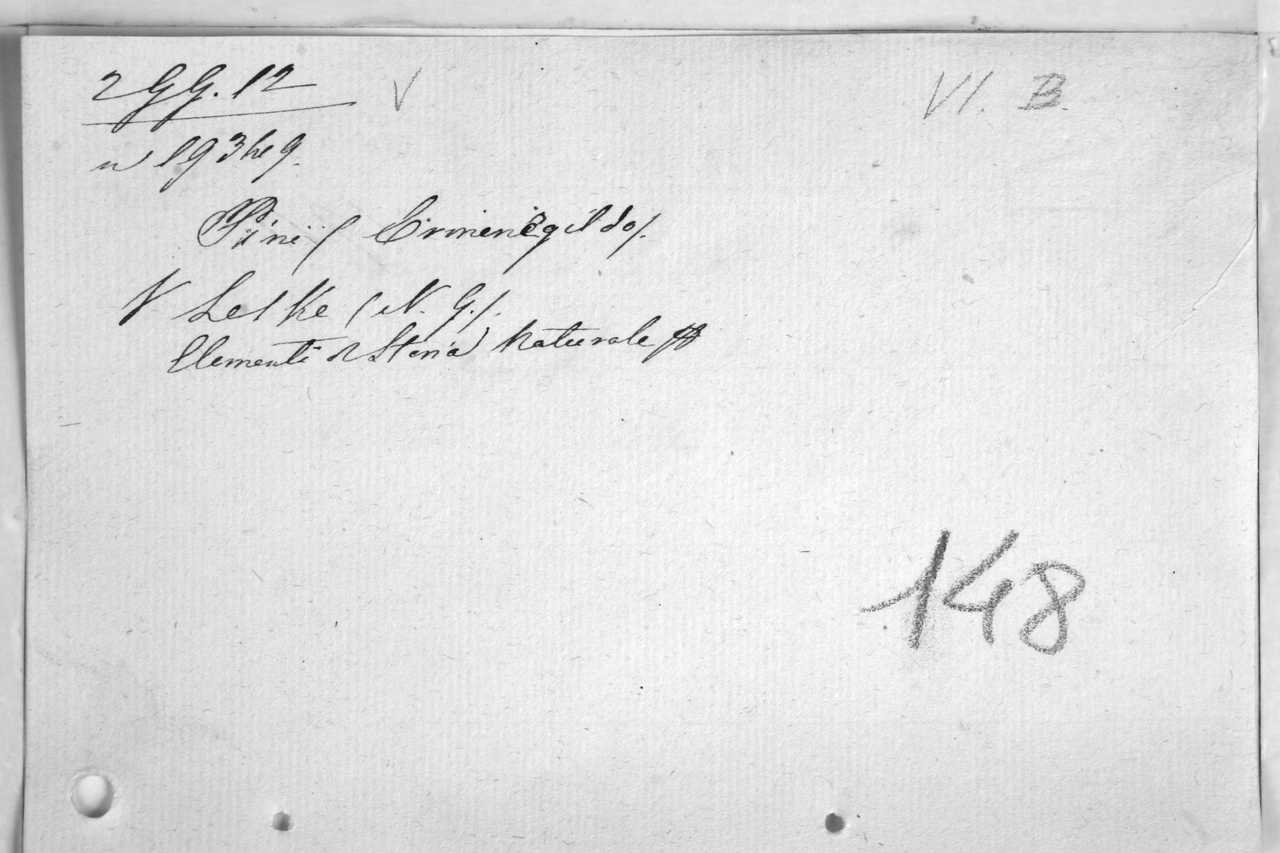 2 GG. 12 V VI. B.
Pini (Ermenegildo).
V Leske (N. G.).
Elementi di Storia Naturale
148